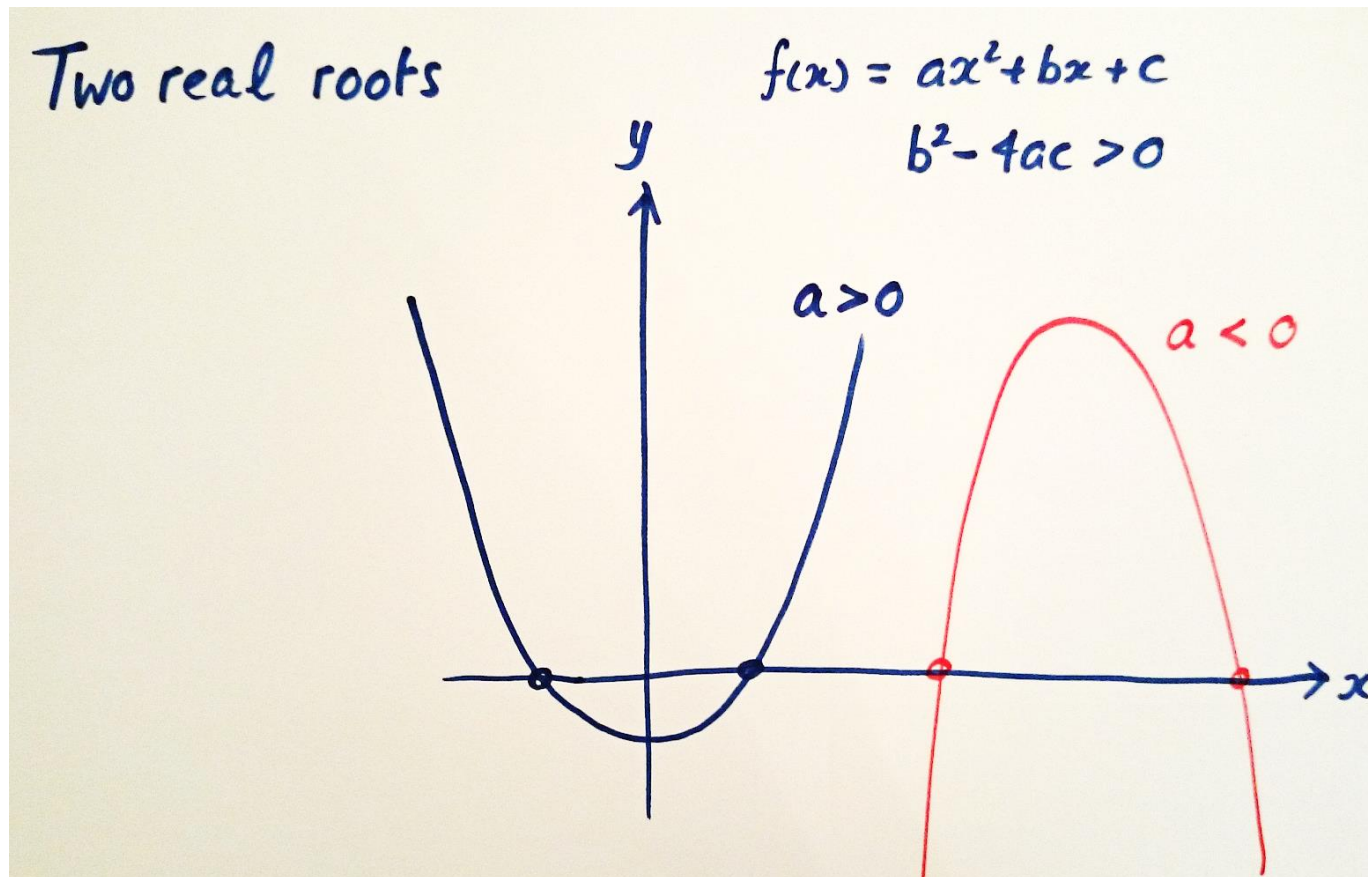 Two real roots
f(x) = ax²+bx+c
b²-4ac >0
y
a>0
a < 0
x